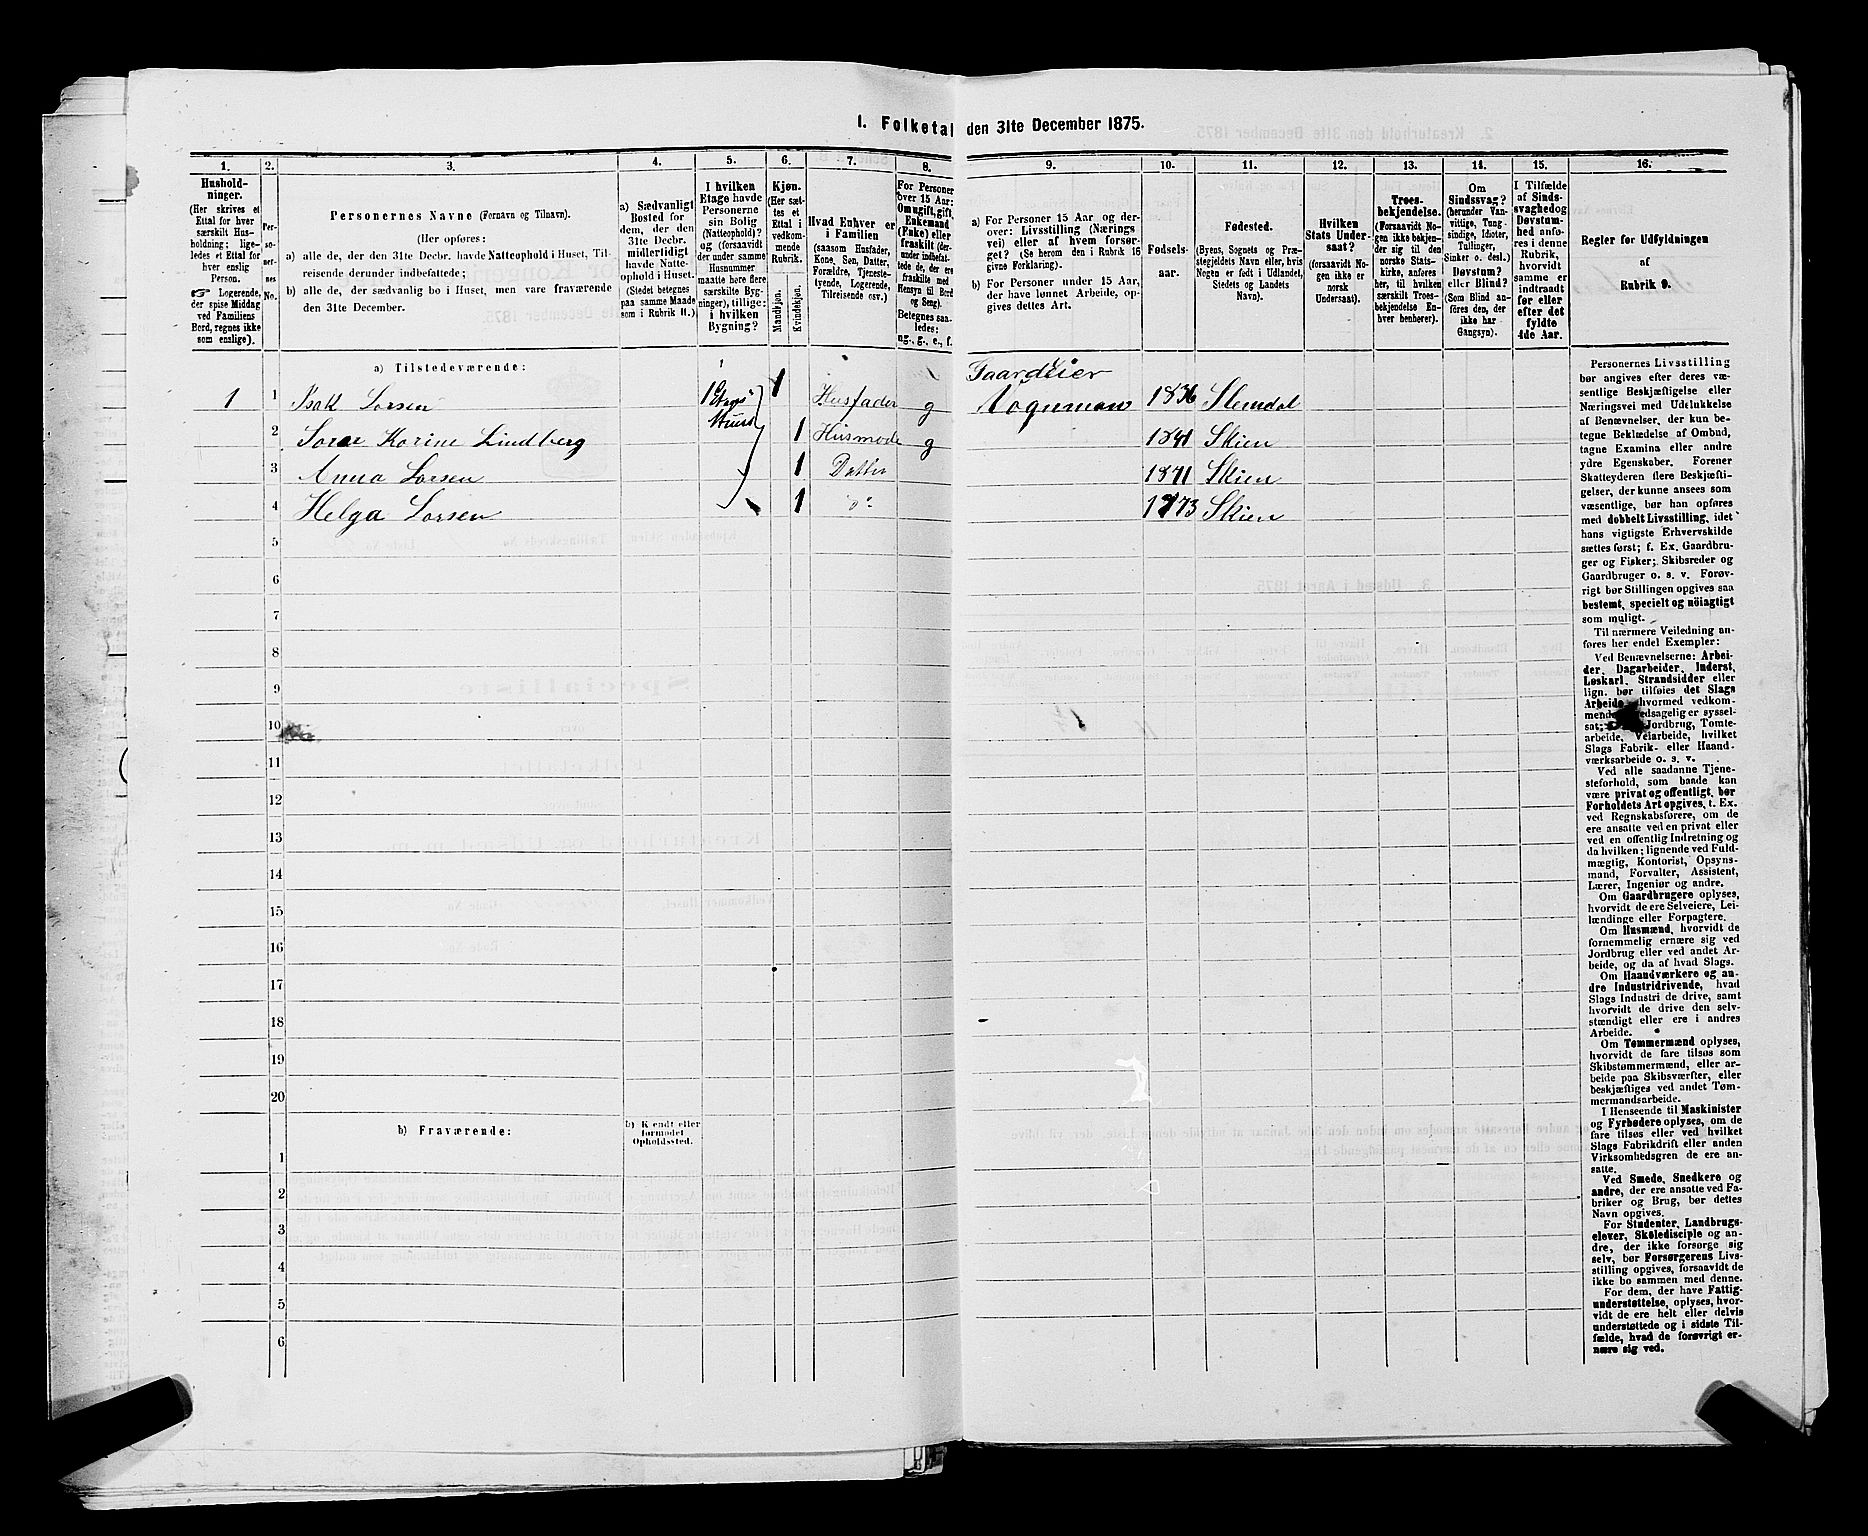 1. Folketal den 31te December 1875.
1. 2. 3. 4. 5. 6. 7. 8. 9. 10. 11. 12. 13. 14. 15. 16.
Hushold-
ninger.
(Her skrives et
Ettal for hver
særskilt Hus-
holdning; lige-
ledes et Ettal for
hver enslig
Person.
☞ Logerende,
der spise Middag
ved Familiens
Bord, regnes ikke
som enslige).
Per-
so-
ner-
nes
No.
Personernes Navne (Fornavn og Tilnavn).
(Her opføres:
a) alle de, der den 31te Decbr. havde Natteophold i Huset, Til-
reisende derunder indbefattede;
b) alle de, der sædvanlig bo i Huset, men vare fraværende
den 31te December.
a) Sædvanligt
Bosted for
dem, der den
31te Decbr.
midlertidigt
havde Natte-
ophold i Huset.
(Stedet betegnes
paa samme Maade
som i Rubrik 11.)
I hvilken
Etage havde
Personerne
sin Bolig
(Natteophold)?
og (forsaavidt
der under samme
Husnummer
maatte høre flere
særskilte Byg-
ninger), tillige:
i hvilken
Bygning?
Kjøn.
(Her sæt-
tes et
Ettal i
vedkom-
mende
Rubrik.
Mandkjøn.
Kvindekjøn.
Hvad Enhver er
i Familien
(saasom Husfader,
Kone, Søn, Datter,
Forældre, Tjeneste-
tyende, Logerende,
Tilreisende osv.)
For Personer
over 15 Aar:
Om ugift, gift,
Enkemand
(Enke) eller
fraskilt (der-
under indbefat-
tede de, der ere
fraskilte med
Hensyn til Bord
og Seng).
Betegnes saa-
ledes:
ug., g., e., f.
a) For Personer 15 Aar og der-
over: Livsstilling (Nærings
vei) eller af hvem forsør-
get? (Se herom den i Rubrik 16
givne Forklaring).
b) For Personer under 15 Aar,
der have lønnet Arbeide, op-
gives dettes Art.
Fødsels-
aar.
Fødested.
(Byens, Sognets og Præ-
stegjeldets Navn eller, hvis
Nogen er født i Udlandet,
Stedets og Landets
Navn).
Hvilken
Stats Under-
saat?
(forsaavidt No-
gen ikke er
norsk
Undersaat).
Troes-
bekjendelse.
(Forsaavidt No-
gen ikke bekjen-
der sig til den
norske Stats-
kirke, anføres
her, til hvilken
særskilt Troes-
bekjendelse En-
hver benhører).
Om
Sindssvag?
(herunder Van-
vittige, Tung-
sindige, Idioter,
Tullinger,
Sinker o. desl.)
Døvstum?
eller Blind?
(Som Blind an-
føres den, der
ikke har
Gangsyn).
I Tilfælde
af Sinds-
svaghed og
Døvstum-
hed anfø-
res i denne
Rubrik,
hvorvidt
samme er
indtraadt
før eller
efter det
fyldte
4de Aar.
Regler for Udfyldningen
af
Rubrik 9.
a) Tilstedeværende:
Gaardeier
1 1 Isak Larsen 1 Etage 1 Husfader g 1836 Slemdal
2 1 Husmode g 1841 Skien
3 Anna Larsen 1 Datter 1871 Skien
4 Helga Larsen 1 do 1873 Skien
5
6
7
8
9
10
11
12
13
14
15
16
17
18
19
20
b) Fraværende:
b) Kjendt eller
formodet
Opholdssted.
1
2
3
4
5
6
Personernes Livsstilling
bør angives efter deres væ-
sentlige Beskjæftigelse eller
Næringsvei med Udelukkelse
af Benævnelser, der kun be-
tegne Beklædelse af Ombud,
tagne Examina eller andre
ydre Egenskaber. Forener
Skatteyderen flere Beskjæfti-
gelser, der kunne ansees som
væsentlige, bør han opføres
med dobbelt Livsstilling, idet
hans vigtigste Erhvervskilde
sættes først; f. Ex. Gaardbru-
ger og Fisker; Skibsreder og
Gaardbruger o. s. v. Forøv-
rigt bør Stillingen opgives saa
bestemt, specielt og nöiagtigt
som muligt.
Til nærmere Veiledning an-
føres her endel Exempler:
Ved Benævnelserne: Arbei-
der, Dagarbeider, Inderst,
Løskarl, Strandsidder eller
lign. bør tilføies det Slags
Arbeide, hvormed vedkom-
mende hovedsagelig er syssel-
sat; Jordbrug, Tomte-
arbeide, Veiarbeide, hvilket
Slags Fabrik- eller Haand-
værksarbeide o. s. v.
Ved alle saadanne Tjene-
steforhold, som baade kan
være privat og offentligt, bør
Forholdets Art opgives, t. Ex.
ved Regnskabsførere, om de
ere ansatte ved en privat eller
ved en offentlig Indretning og
da hvilken; lignende ved Fuld-
mægtig, Kontorist, Opsyns-
mand, Forvalter, Assistent,
Lærer, Ingeniør og andre.
Om Gaardbrugere oplyses,
hvorvidt de ere Selveiere, Lei-
lændinge eller Forpagtere.
Om Husmænd, hvorvidt de
fornemmelig ernære sig ved
Jordbrug eller ved andet Ar-
beide, og da af hvad Slags.
Om Haandværkere og an-
dre Industridrivende, hvad
Slags Industri de drive, samt
hvorvidt de drive den selv-
stændigt eller ere i andres
Arbeide.
Om Tømmermænd oplyses,
hvorvidt de fare tilsøs som
Skibstømmermænd, eller ar-
beide paa Skibsværfter, eller
beskjæftiges ved andet Tøm-
mermandsarbeide.
I Henseende til Maskinister
og Fyrbødere oplyses, om de
fare tilsøs eller ved hvilket
Slags Fabrikdrift eller anden
Virksomhedsgren de ere an-
satte.
Ved Smede, Snedkere og
andre, der ere ansatte ved Fa-
briker og Brug, bør dettes
Navn opgives.
For Studenter, Landbrugs-
elever, Skoledisciple og an-
dre, der ikke forsørge sig
selv, bør Forsørgerens Livs-
stilling opgives, forsaavidt de
ikke bo sammen med denne.
For dem, der have Fattig-
understøttelse, oplyses, hvor-
vidt de ere helt eller delvis
understøttede og i sidste Til-
fælde, hvad de forøvrigt er-
nære sig ved.